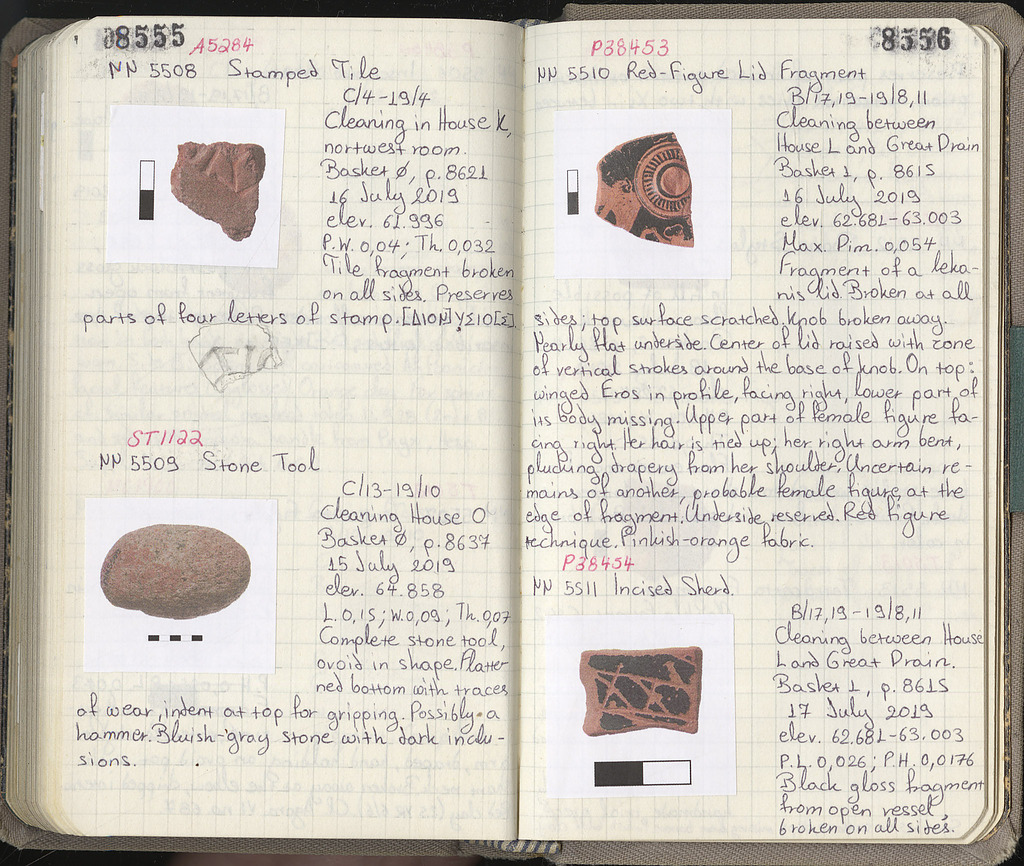 08555
A5284
NN 5508 Stamped Tile
C/4-19/4
Cleaning in House K,
nortwest room.
Basket Ø, p. 8621
16 July 2019
elev. 61.996
P.W. 0,04; Th. 0,032
Tile fragment broken
on all sides. Preserves
parts of four letters of stamp. [ΔΙΟΝ]ΥΣΙΟ[Σ].
ST1122
NN 5509 Stone Tool
C/13-19/10
Cleaning House O
Basket Ø, p. 8637
15 July 2019
elev. 64.858
L. 0,15; W. 0,09; Th. 0,07
Complete stone tool,
ovoid in shape. Flatte-
ned bottom with traces
of wear, indent at top for gripping. Possibly a
hammer. Bluish-gray stone with dark inclu-
sions.
8556
P38453
NN 5510 Red-Figure Lid Fragment
B/17,19-19/8,11
Cleaning between
House L and Great Drain
Basket 1, p. 8615
16 July 2019
elev. 62.681-63.003
Max. Dim. 0,054,
Fragment of a leka-
nis lid. Broken at all
sides; top surface scratched. Knob broken away.
Nearly flat underside. Center of lid raised with zone
of vertical strokes around the base of knob. On top:
winged Eros in profile, facing right, lower part of
its body missing. Upper part of female figure fa-
cing right. Her hair is tied up; her right arm bent,
plucking drapery from her shoulder. Uncertain re-
mains of another, probable female figure, at the
edge of fragment. Underside reserved. Red figure
technique. Pinkish-orange fabric.
P38454
NN 5511 Incised Sherd.
B/17,19-19/8,11
Cleaning between House
L and Great Drain.
Basket 1, p. 8615
17 July 2019
elev. 62.681-63.003
P.L. 0,026; P.H. 0,0176
Black gloss fragment
from open vessel,
broken on all sides.